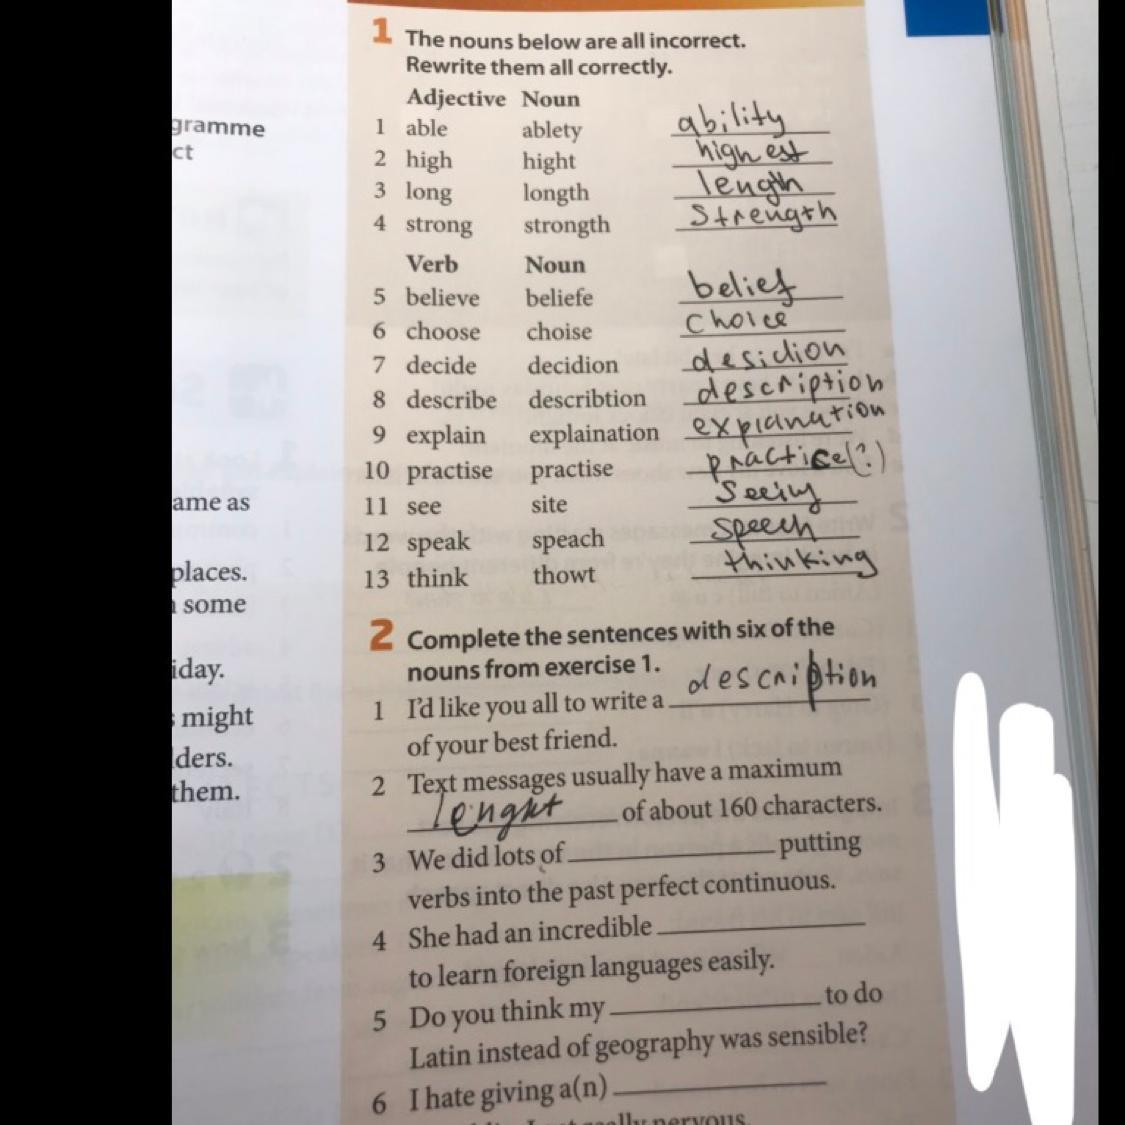 gramme
ct
ame as
places.
some
iday.
might
ders.
them.
1 The nouns below are all incorrect.
Rewrite them all correctly.
Adjective Noun
1 able ablety ability
2 high hight highest
3 long longth length
4 strong strongth Strength
Verb Noun
5 believe beliefe belief
6 choose choise choice
7 decide decidion desidion
8 describe describtion description
9 explain explaination explanation
10 practise practise practice(?)
11 see site Seeing
12 speak speach speech
13 think thowt thinking
2 Complete the sentences with six of the
nouns from exercise 1.
1 I'd like you all to write a description
of your best friend.
2 Text messages usually have a maximum
lenght of about 160 characters.
3 We did lots of putting
verbs into the past perfect continuous.
4 She had an incredible
to learn foreign languages easily.
5 Do you think my to do
Latin instead of geography was sensible?
6 I hate giving a(n)
nervous.